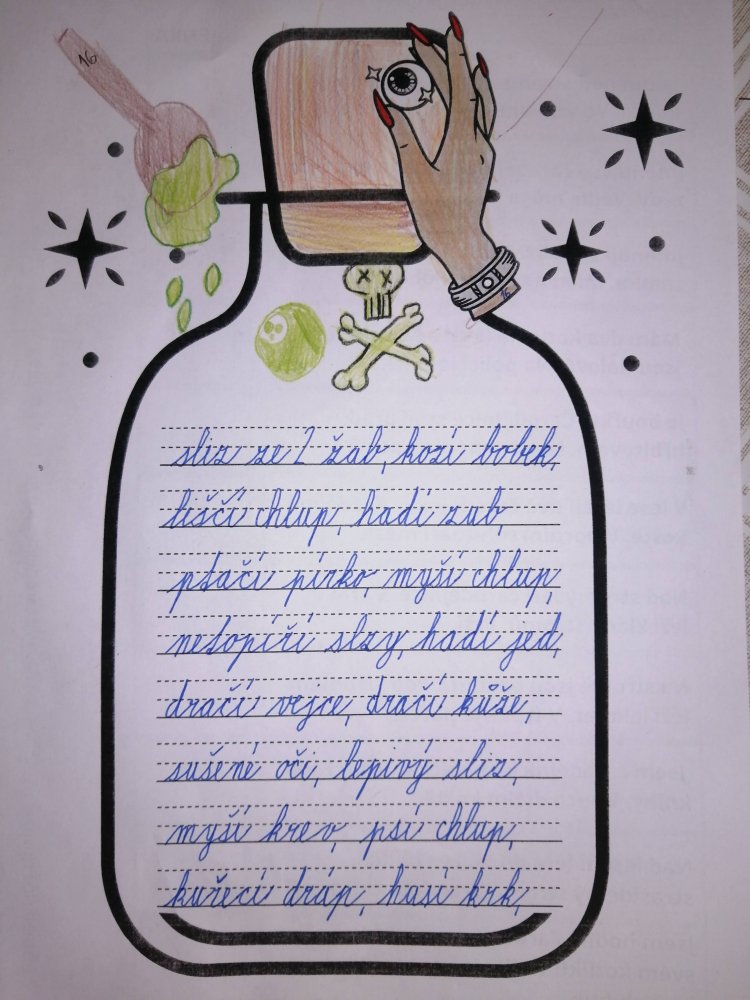 16
16
sliz ze 2 žab, kozí bobek,
liščí chlup, hadí zub,
ptačí pírko, myší chlup,
netopíří slzy, hadí jed,
dračí vejce, dračí kůže,
sušené oči, lepivý sliz,
myší krev, psí chlup,
kuřecí dráp, husí krk,